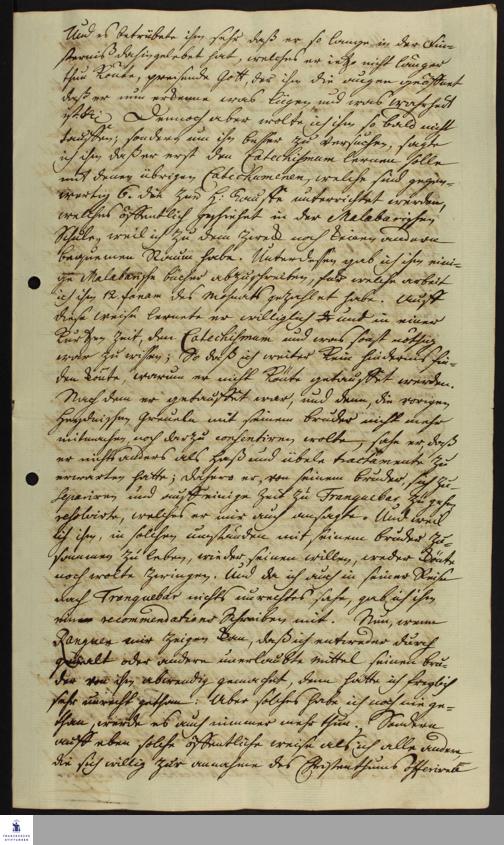 Und es betrübete ihn sehr daß er so lange in der Fin-
sterniß dahingelebet hat, welches er ietzo nicht länger
thun könte, preisende Gott, der ihm die augen geöffnet
daß er nun erkenne was Lügen und was wahrheit
ist &c. Dennoch aber wolte ich ihn so bald nicht
tauffen; sondern um ihn besser zu versuchen, sagte
ich ihm daß er erst den Catechismum lernen solle
mit denen übrigen Catechumenen, welche sind gegen-
wertig 6. die zur H: Tauffe unterrichtet werden,
welches öffentlich geschiehet in der Malabarischen
Schule, weil ich zu dem Zweck noch keinen andern
bequemen Raum habe. Unterdessen gab ich ihm eini-
ge Malabarische bücher abzuschreiben, für welche arbeit
ich ihm 12 fanam des Monats gezahlet habe. Auff
diese weise lernete er williglich und in einer
kurtzen Zeit, den Catechismum und was sonst nöthig
war zu wissen; So daß ich weiter kein hinderniß fin-
den könte, warum er nicht könte getauffet werden.
Nach dem er getauffet war, und denn die vorigen
heydnischen Greueln mit seinem bruder nicht mehr
mitmachen, noch darzu consentiren wolte, sahe er daß
er nichts anders als Haß und übele tractamente zu
erwarten hatte; dahero er, von seinem bruder, sich zu
separiren und auff einige Zeit zu Tranquebar zu gehen
resolvirte, welches er mir auch ansagte. Und weil
ich ihn, in solchen umständen mit seinem bruder zu-
sammen zu leben, wieder seinen willen, weder könte
noch wolte zwingen. Und da ich auch in seiner Reise
nach Tranquebar nichts unrechtes sahe, gab ich ihm
ein recommendations Schreiben mit. Nun, wenn
mir zeigen kan, daß ich entweder durch
gewalt oder andere unerlaubte mittel seinen bru-
der von ihm abwendig gemachet, denn hätte ich freylich
sehr unrecht gethan: Aber solches habe ich noch nie ge-
than, werde es auch nimmer mehr thun, Sondern
auff eben solche öffentliche weise als ich alle andere,
die sich willig zur annahme des Christenthums
FRANCKESCHE
STIFTUNGEN